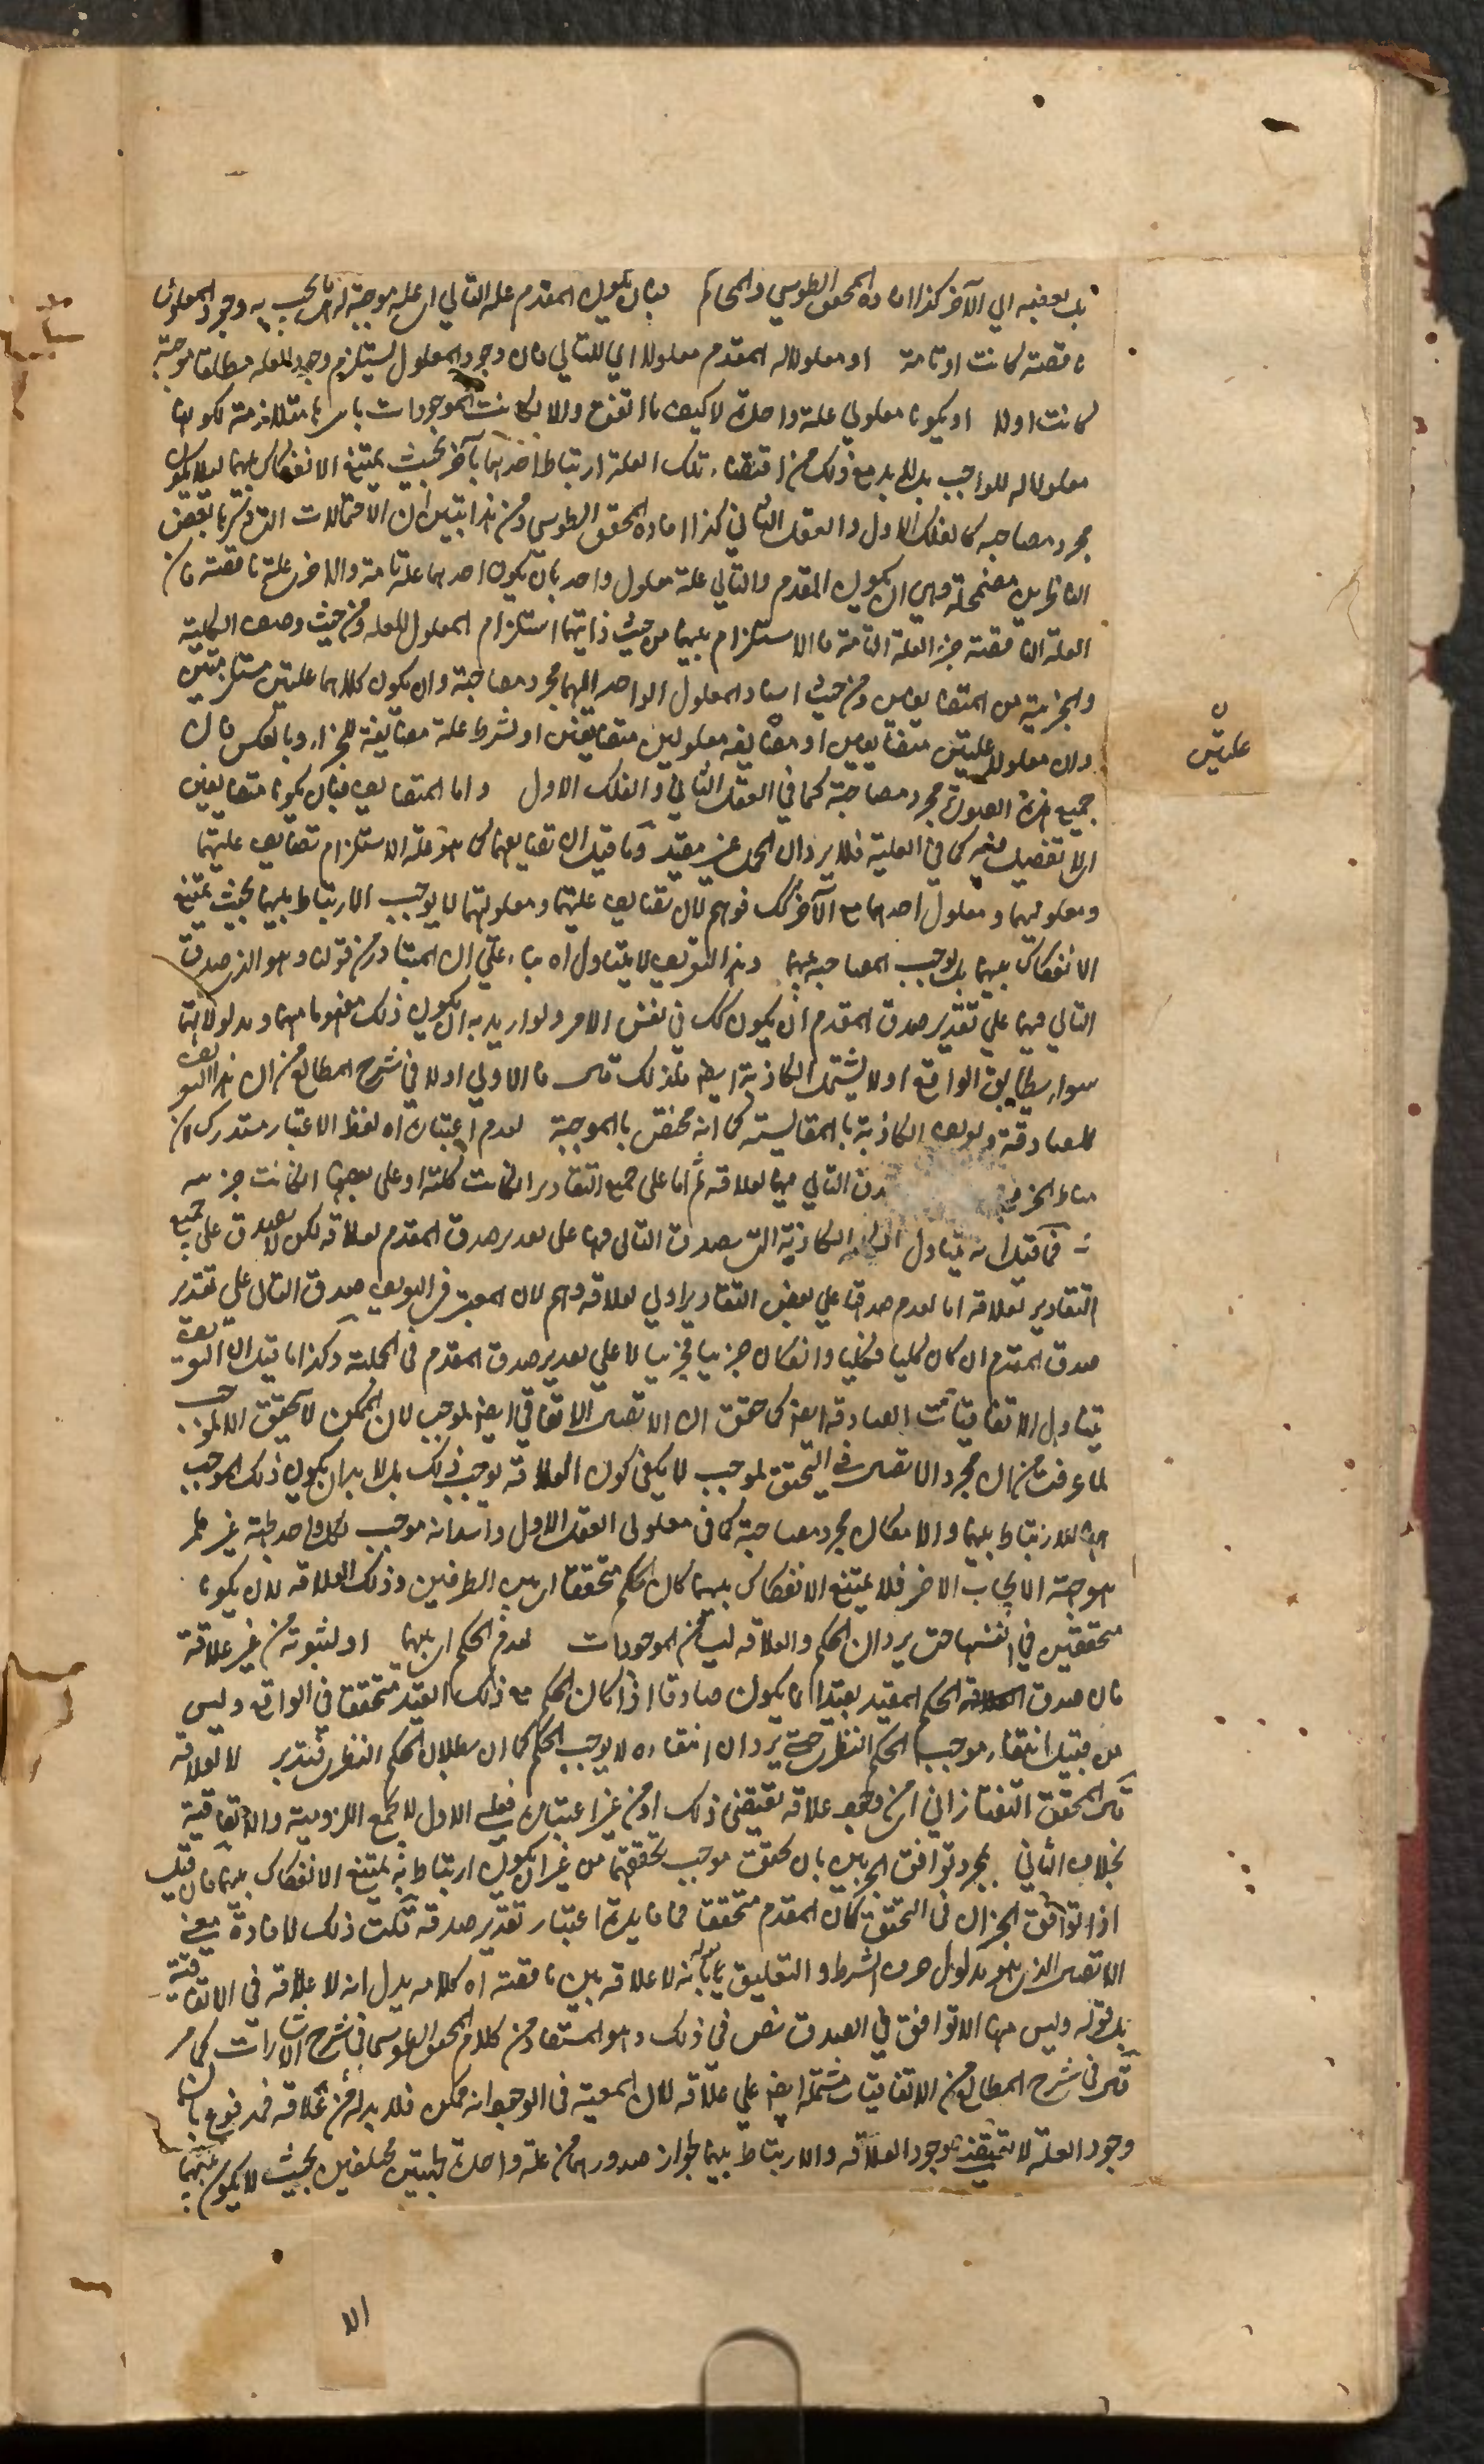 بل بعضه الي الآخر كذا افاده المحقق الطوسي والمحاكم فبان يكون المقدم علة التالي اي علة موجبة له اي ما يجب به وجود المعلول
ناقصة كانت او تامة او معلولا له المقدم معلولا اي للتالي فان وجود المعلول يستلزم وجود العلة مطلقا موجبة
كانت اولا او يكونا معلولي علة واحدة لا كيف ما اتفق والا لكانت الموجودات باسرها متلازمة لكونها
معلولا له للواجب بل لا بد مع ذلك من اقتضاء تلك العلة ارتباط احدهما بآخر بحيث يمتنع الانفكاك بينهما لئلا يكون
مجرد مصاحبة كالفلك الاول والعقل الثاني كذا افاده المحقق الطوسي ومن هذا تبين ان الاحتمالات التي ذكرها بعض
الناظرين مضمحلة وهي ان يكون المقدم والتالي علة معلول واحد بان يكون احدهما علة تامة والاخر علة ناقصة فان
العلة الناقصة جزء العلة التامة فالاستلزام بينهما من حيث ذاتيهما استلزام المعلول للعلة ومن حيث وصف الكلية
والجزئية من المتضايفين ومن حيث اسناد المعلول الواحد اليهما مجرد مصاحبة وان يكون كلاهما علتين مستلزمتين
وان معلولا علتين متضايفين او مضايفه معلولين متضايفين او لشرط علة مضايفة للجزاء وبالعكس فان
جميع هذه الصور مجرد مصاحبة كما في العقل الثاني والفلك الاول واما المتضايف فبان يكونا متضايفين
اي لا تفصيل فيه كما في العلية فلا يرد ان الحمل غير مفيد وما قيل ان تضايفهما كما هو علة الاستلزام تضايف علتيهما
ومعلوليهما ومعلول احدهما مع الآخر كك فوهم لان تضايف علتيهما ومعلوليهما لا يوجب الارتباط بينهما بحيث يمتنع
الانفكاك بينهما بل يوجب المصاحبة بينهما وهذا التعريف لا يتناول اه بناء علي ان المتبادر من قوله وهو الذي صدق
التالي فيها علي تقدير صدق المقدم ان يكون كك في نفس الامر ولو اريد به ان يكون ذلك مفهومها ومدلولاتها
سواء يطابق الواقع اولا يشتمل الكاذبة ايضا فلذلك قال فالاولي اولا في شرح المطالع من ان هذا التعريف
للصادقة وتعريف الكاذبة بالمقايسة كما انه مختص بالموجبة لعدم اعتباره اه لفظ الاعتبار مستدرك لان
مناط الجزئية صدق التالي فيها لعلاقة ثم اما على جميع التقادير ان كانت كلية او على بعضها ان كانت جزئية
فما قيل انه يتناول الكلية الكاذبة التي يصدق التالي فيها على تقدير صدق المقدم لعلاقة لكن لا يصدق على جميع
التقادير لعلاقة اما لعدم صدقها علي بعض التقادير او لي لعلاقة وهم لان المعتبر في التعريف صدق التالي على تقدير
صدق المقدم ان كان كليا فكليا وان كان جزئيا فجزئيا لا علي تقدير صدق المقدم في الجملة وكذا ما قيل ان التعريف
يتناول الاتفاقيات الصادقة ايضا كما حقق ان الاتصال الاتفاقي ايضا لموجب لان الممكن لا يتحقق الا لموجب
لما عرفت من ان مجرد الاتصال في التحقق لموجب لا يكفي كون العلاقة توجب ذلك بل لا بد ان يكون ذلك الموجب
للارتباط بينهما والا لكان مجرد مصاحبة كما في معلولي العقل الاول واسناده موجب لكل واحد بجهة غير
موجبة الايجاب الاخر فلا يمتنع الانفكاك بينهما كان الحكم متحققا اي بين الطرفين وذلك العلاقة لان يكونا
متحققين في انفسهما حتى يرد ان الحكم والعلاقة ليسا من الموجودات لعدم الحكم اي بينهما او لثبوته من غير علاقة
فان صدق الحكم المقيد بقيد انما يكون صادقا اذا كان الحكم مع ذلك القيد متحققا في الواقع وليس
من قبيل انتفاء موجب الحكم النظري حتى يرد ان انتفاءه لا يوجب الحكم كما ان بطلان الحكم النظري فتدبر لا لعلاقة
قال المحقق التفتازاني اي من غير علاقة تقتضي ذلك او من غير اعتبارها فعلى الاول لا تجمع اللزومية والاتفاقية
بخلاف الثاني بمجرد توافق الجزئين بان تحقق موجب تحققهما من غير ان يكون ارتباط به يمتنع الانفكاك بينهما فان قيل
اذا توافق الجزآن في التحقق كان المقدم متحققا فما فائدة اعتبار تقدير صدقه قلت ذلك لافادة معنى
الاتصال الذي هو مدلول حرف الشرط والتعليق بانه لا علاقة بين ناقصة اه كلامه يدل انه لا علاقة في الاتفاقية
بل قوله وليس فيها الا توافق في الصدق نص في ذلك وهو المستفاد من كلام المحقق الطوسي في شرح الاشارات كما مر
قال في شرح المطالع من الاتفاقيات مشتملة ايضا علي علاقة لان المعية في الوجود امر ممكن فلا بد له من علاقة فمدفوع بان
وجود العلة لا تقتضي وجود العلاقة والارتباط بينهما لجواز صدورهما من علة واحدة بجهتين مختلفين بحيث لا يكون بينهما
علتين
الا